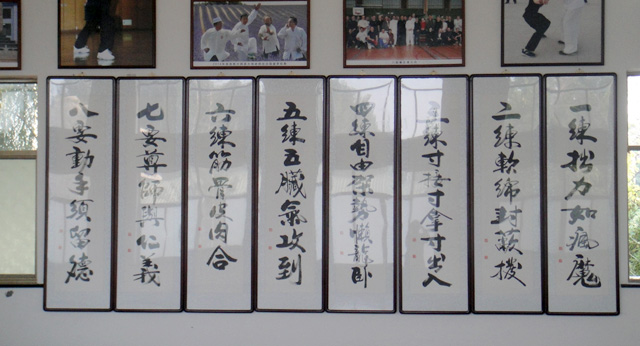 一練拙力如瘋魔
二練軟綿封蔽撥
三練寸接寸拿寸出入
四練自由架勢懶龍臥
五練五臟氣攻到
六練筋骨皮肉合
七要尊師與仁義
八要動手須留德